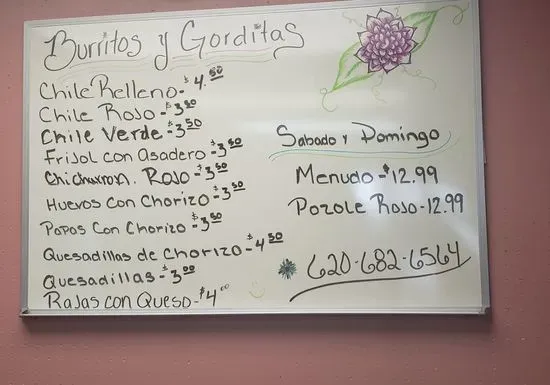 Burritos y Gorditas
Chile Relleno - $4.50
Chile Rojo - $3.50
Chile Verde - $3.50
Frijol con Asadero - $3.50
Chicharron. Rojo - $3.50
Huevos con Chorizo - $3.50
Papas Con Chorizo - $3.50
Quesadillas de Chorizo - $4.50
Quesadillas - $3.00
Rajas con Queso - $4.00
Sabado y Domingo
Menudo - $12.99
Pozole Rojo - 12.99
620-682-6564